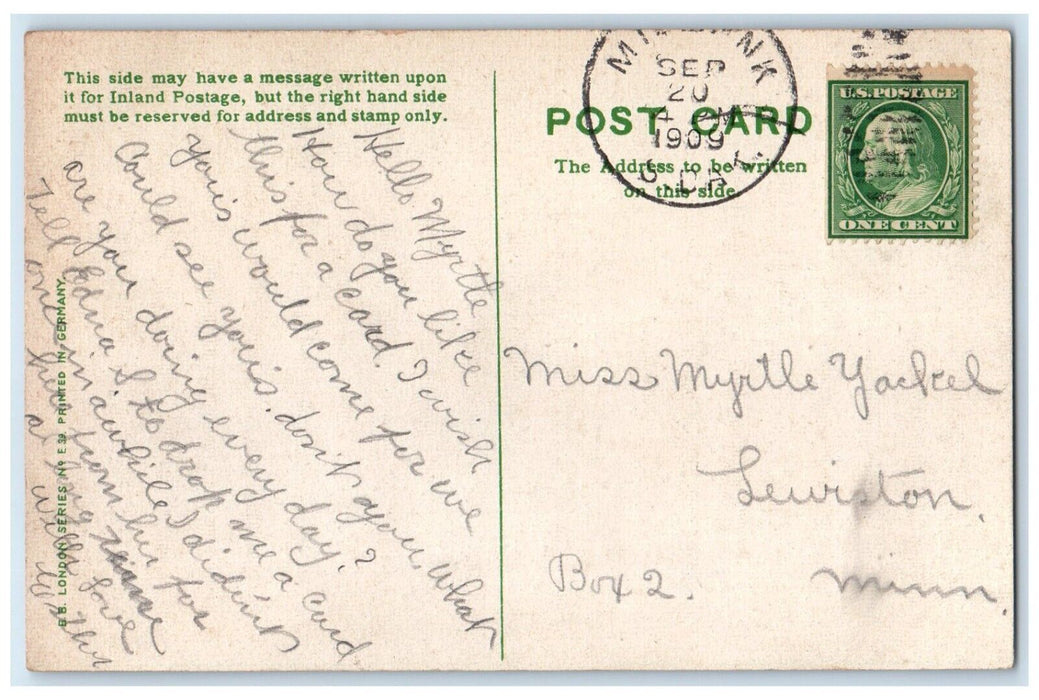 This side may have a message written upon
it for Inland Postage, but the right hand side
must be reserved for address and stamp only.
Hello Myrtle
How do you like
this for a card. I wish
youis would come for we
Could see youis. don't you, what
are you doing every day?
Tell Edna S to drop me a card
once in awhile I didn't
hear from her for
a long
with love
B.B. LONDON, SERIES No E.39. PRINTED IN GERMANY.
POST CARD
The Address to be written
on this side
SEP
20
1909
S.DAK.
U.S. POSTAGE
ONE CENT
Miss Myrtle Yackel
Lewiston,
Box 2. Minn.